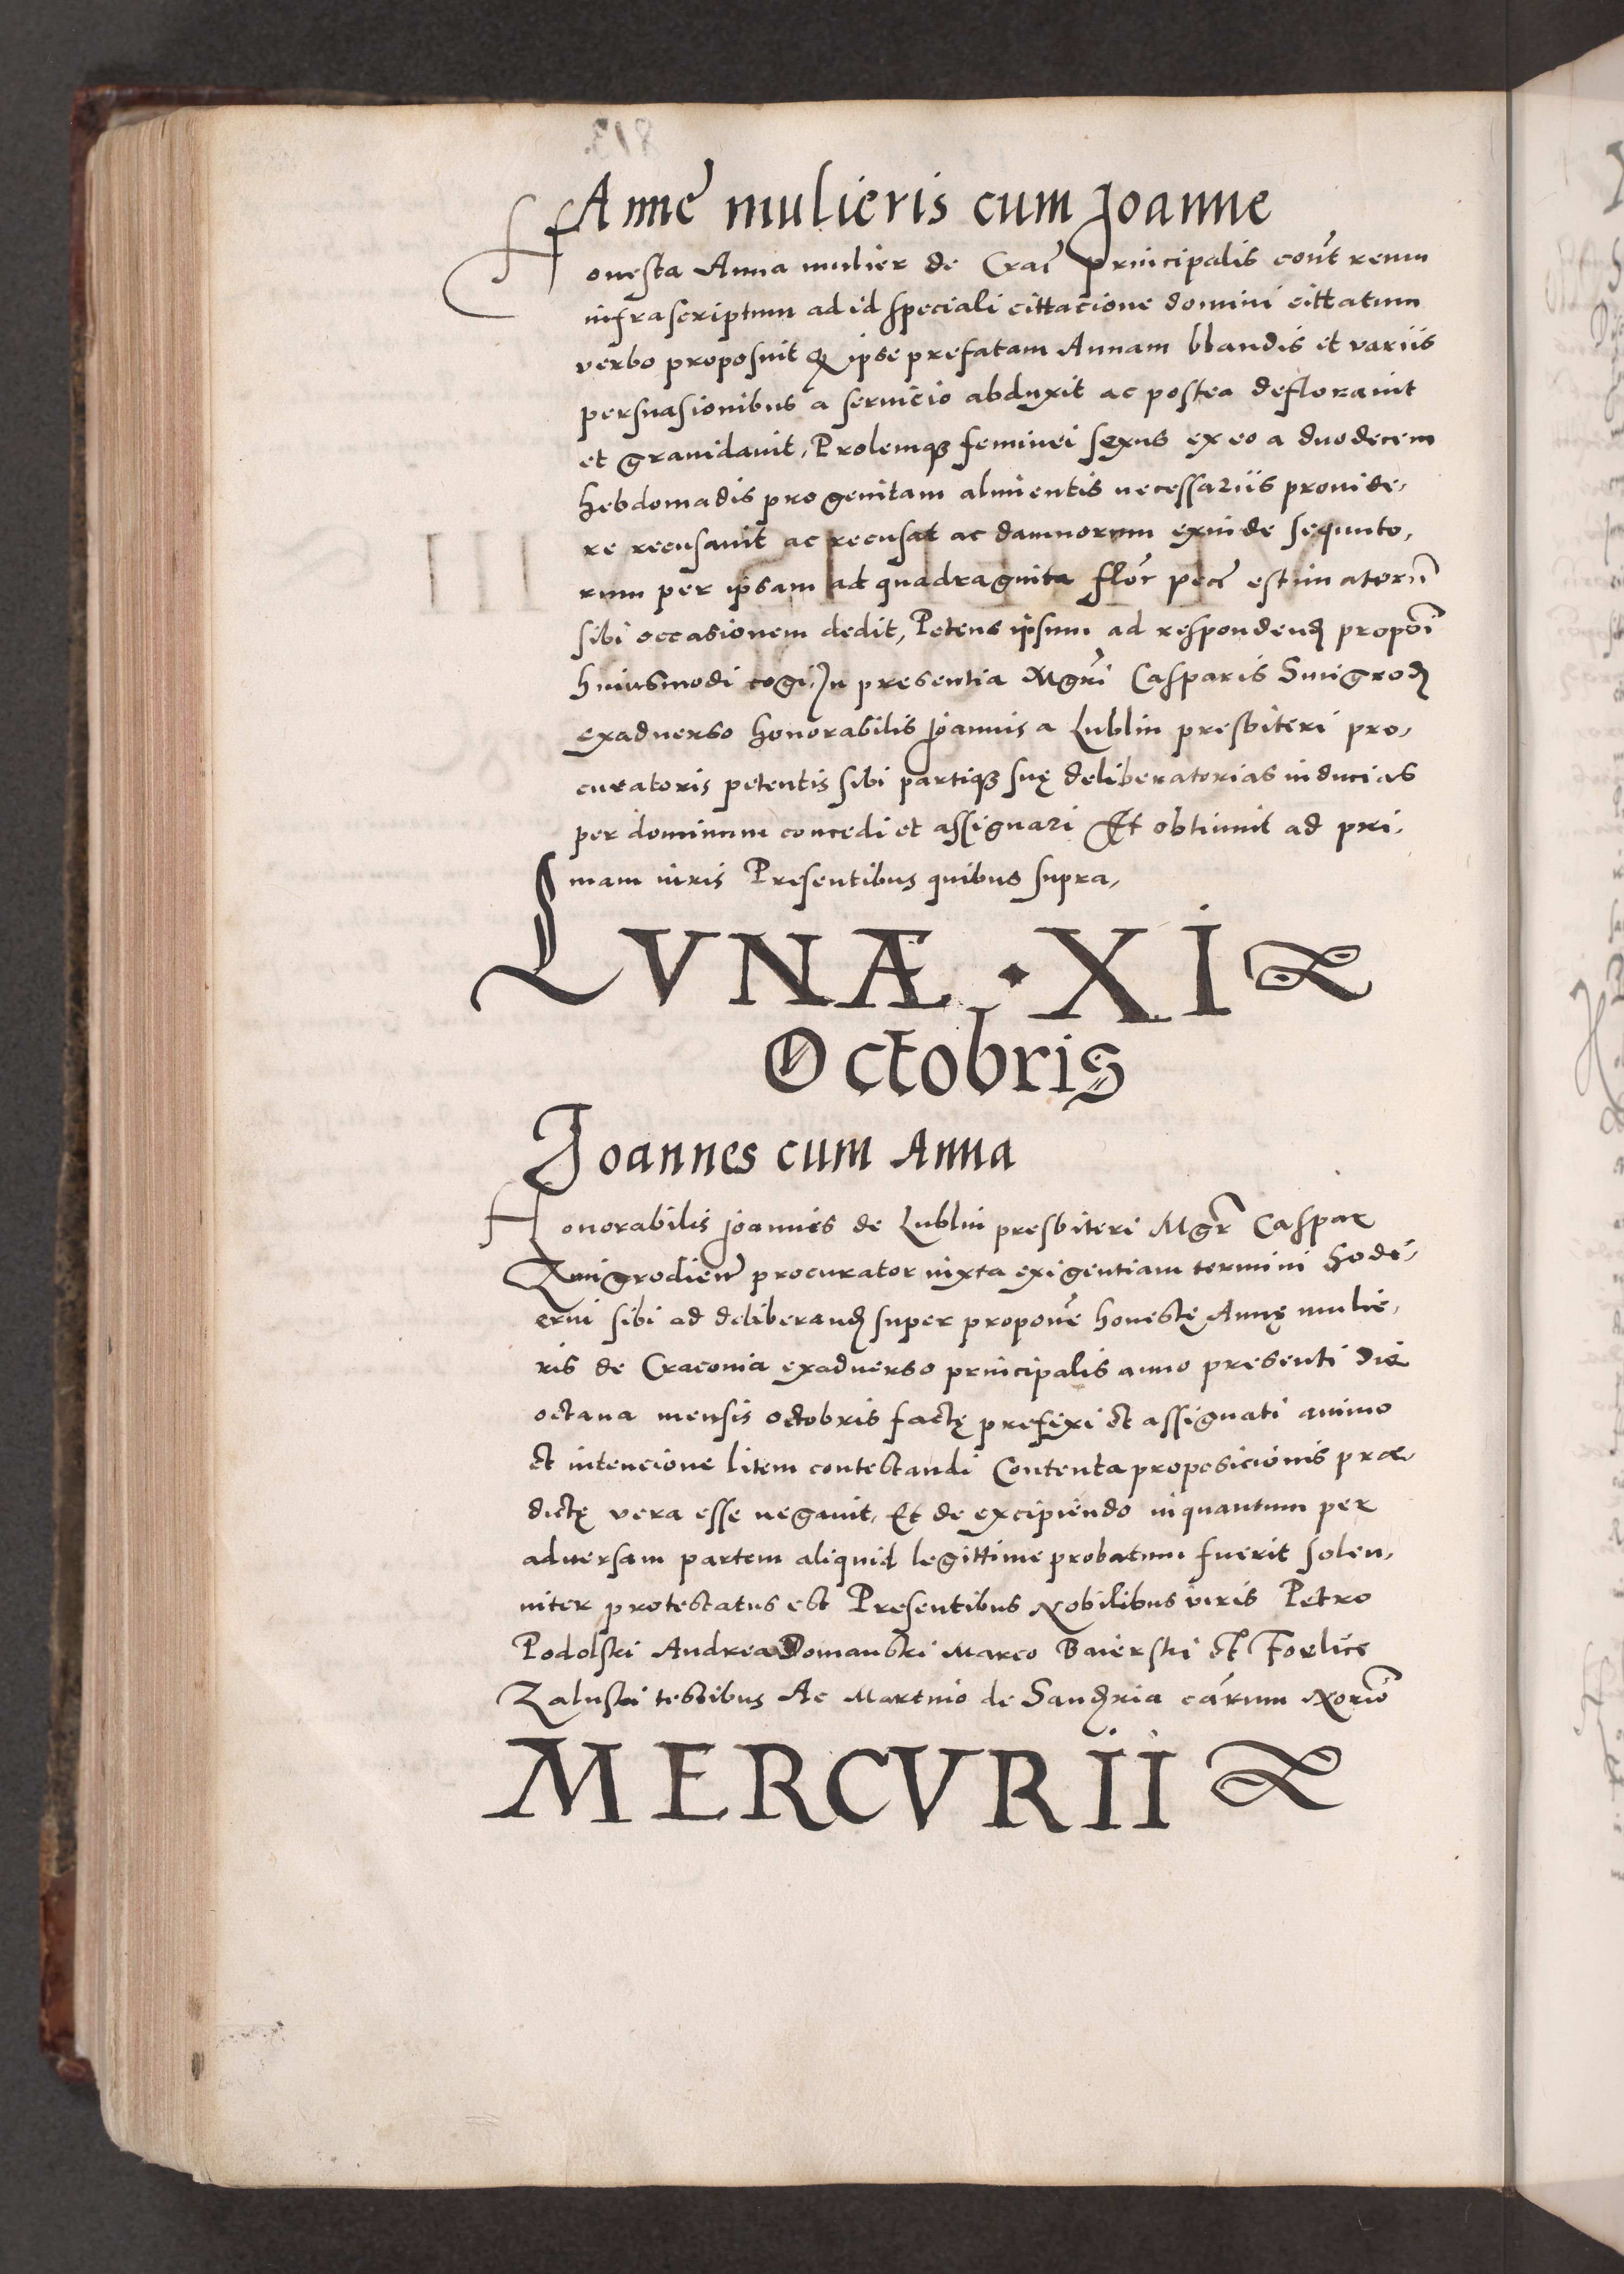 Anne mulieris cum Joanne
Honesta Anna mulier de Crac principalis cont reum
infrascriptum ad id speciali cittacione domini cittatum
verbo proposuit q ipse prefatam Annam blandis et variis
persuasionibus a servicio abduxit ac postea defloravit
et gravidavit, Prolemq feminei sexus ex eo a duodecem
hebdomadis progenitam alimentis necessariis provide,
re recusavit ac recusat ac damnorum exinde sequuto,
rum per ipsam ad quadraginta flor pece estimatorum
sibi occasionem dedit, Petens ipsum ad respondend proponi
huiusmodi cogi, In presentia Mgri Casparis Smigrod
exadverso honorabilis Joannis a Lublin presbiteri pro,
curatoris petentis sibi partiq suę deliberatorias inducias
per dominum concedi et assignari Et obtinuit ad pri,
mam iuris Presentibus quibus supra,
LVNÆ · XI
Octobris
Joannes cum Anna
Honorabilis Joannis de Lublin presbiteri Mgr Caspar
Zmigrodien procurator iuxta exigentiam termini hodi,
erni sibi ad deliberand super propone honestę Annę mulie,
ris de Craconia exadverso principalis anno presenti die
octava mensis octobris factę prefixi et assignati animo
et intencione litem contestandi Contenta proposicionis præ,
dictę vera esse negavit, Et de excipiendo inquantum per
adversam partem aliquid legittime probatum fuerit solen,
niter protestatus est Presentibus Nobilibus viris Petro
Podolski Andrea Domanski Marco Baierski et Foelice
Zaluski testibus Ac Martino de Sandria carum
MERCVRII